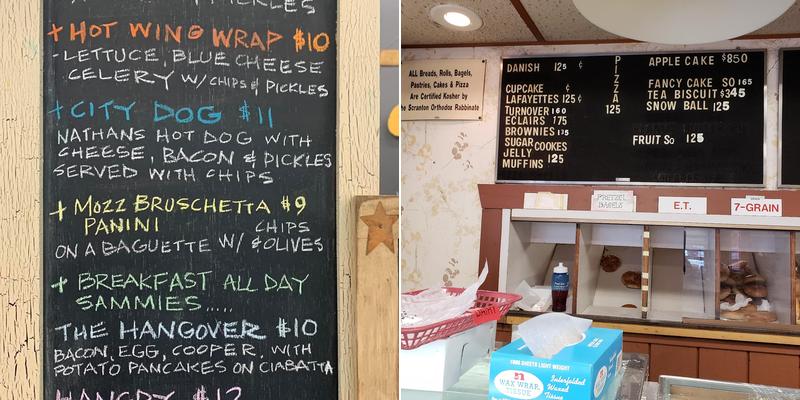 PICKLES
+ HOT WING WRAP $10
- LETTUCE, BLUE CHEESE
CELERY W/ CHIPS & PICKLES
+ CITY DOG $11
NATHANS HOT DOG WITH
CHEESE, BACON & PICKLES
SERVED WITH CHIPS
+ MOZZ BRUSCHETTA $9
PANINI CHIPS
ON A BAGUETTE W/ & OLIVES
+ BREAKFAST ALL DAY
SAMMIES.....
THE HANGOVER $10
BACON, EGG, COOPER, WITH
POTATO PANCAKES ON CIABATTA
HANGRY $12
ALL Breads, Rolls, Bagels,
Pastries, Cakes & Pizza
Are Certified Kosher by
The Scranton Orthodox Rabbinate
DANISH 125 ¢
CUPCAKE ¢
LAFAYETTES 125 ¢
TURNOVER 160
ECLAIRS 175
BROWNIES 135
SUGAR COOKES
JELLY
MUFFINS 125
PIZZA
125
APPLE CAKE $850
FANCY CAKE SO 165
TEA BISCUIT $345
SNOW BALL 125
FRUIT So 125
PRETZEL
BAGELS
E.T.
7-GRAIN
DAIRY
1000 SHEETS LIGHT WEIGHT
WAX WRAP
TISSUE
Interfolded
Waxed
Tissue